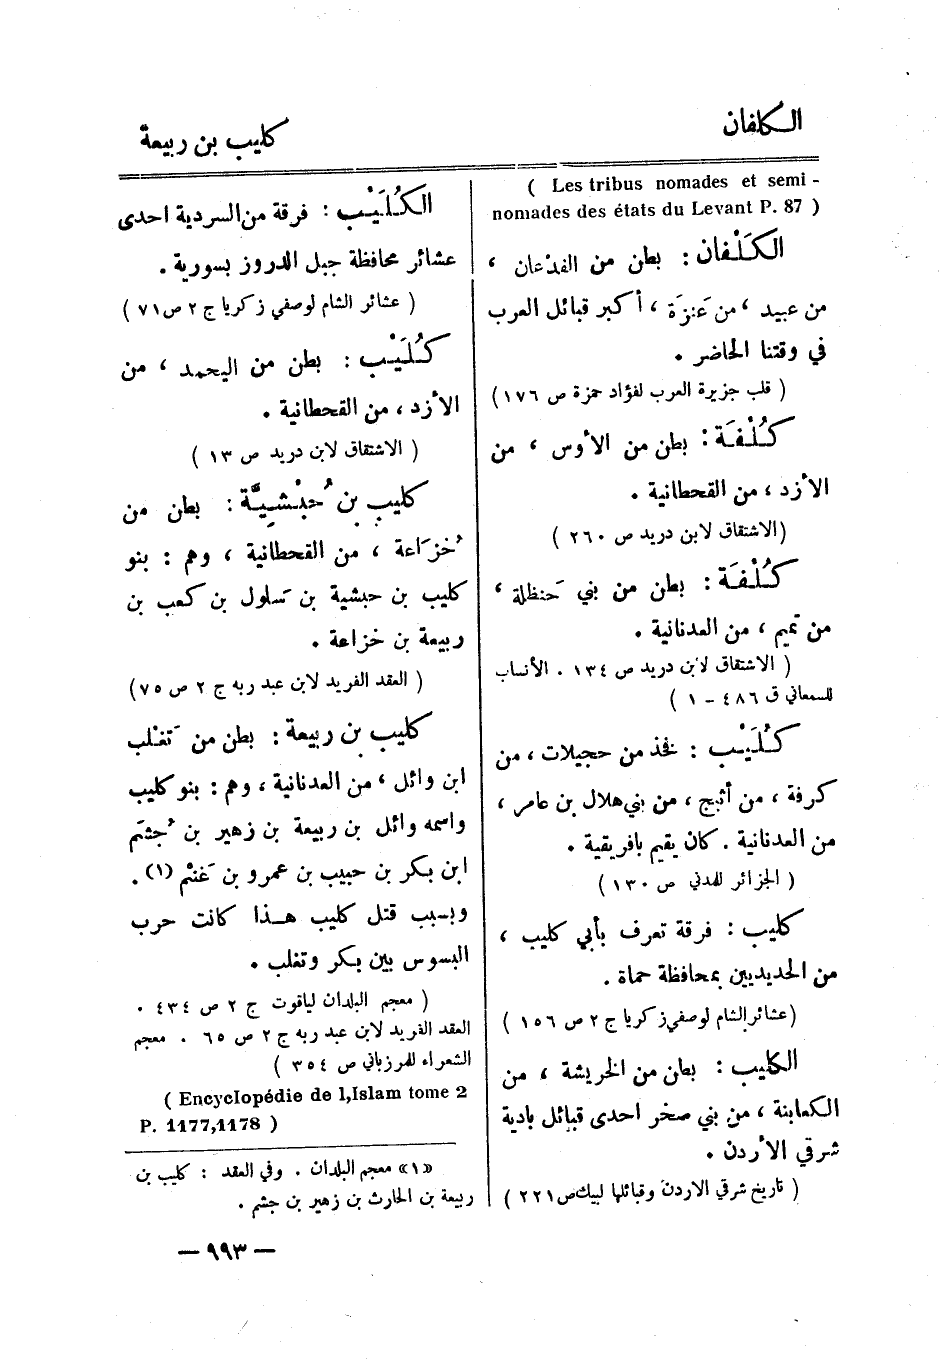 الكلفان
كليب بن ربيعة
( Les tribus nomades et semi -
nomades des états du Levant P. 87 )
الكَلْفان : بطن من الفدْعان ،
من عبيد ، من عَنزَة ، أكبر قبائل العرب
في وقتنا الحاضر .
( قلب جزيرة العرب لفؤاد حمزة ص ١٧٦ )
كُلْفَة : بطن من الأوس ، من
الأزد ، من القحطانية .
( الاشتقاق لابن دريد ص ٢٦٠ )
كُلْفَة : بطن من بني حَنظلة ،
من تميم ، من العدنانية .
( الاشتقاق لابن دريد ص ١٣٤ . الأنساب
للسمعاني ق ٤٨٦ - ١ )
كُلَيْب : فخذ من حجيلات ، من
كرفة ، من أثبج ، من بني هلال بن عامر ،
من العدنانية . كان يقيم بافريقية .
( الجزائر للمدني ص ١٣٠ )
كليب : فرقة تعرف بأبي كليب ،
من الحديديين بمحافظة حماة .
( عشائر الشام لوصفي زكريا ج ٢ ص ١٥٦ )
الكليب : بطن من الخريشة ، من
الكعابنة ، من بني صخر احدى قبائل بادية
شرقي الأردن .
( تاريخ شرقي الاردن وقبائلها لبيك ص ٢٢١ )
الكُلَيْب : فرقة من السردية احدى
عشائر محافظة جبل الدروز بسورية .
( عشائر الشام لوصفي زكريا ج ٢ ص ٧١ )
كُلَيْب : بطن من اليحمد ، من
الأزد ، من القحطانية .
( الاشتقاق لابن دريد ص ١٣ )
كليب بن حُبْشِيَّة : بطن من
خُزَاعة ، من القحطانية ، وهم : بنو
كليب بن حبشية بن سَلول بن كعب بن
ربيعة بن خزاعة .
( العقد الفريد لابن عبد ربه ج ٢ ص ٧٥ )
كليب بن ربيعة : بطن من تَغْلب
ابن وائل ، من العدنانية ، وهم : بنو كليب
واسمه وائل بن ربيعة بن زهير بن جُشَم
ابن بكر بن حبيب بن عمرو بن غَنْم (١) .
وبسبب قتل كليب هـذا كانت حرب
البسوس بين بكر وتغلب .
( معجم البلدان لياقوت ج ٢ ص ٤٣٤ .
العقد الفريد لابن عبد ربه ج ٢ ص ٦٥ . معجم
الشعراء للمرزباني ص ٣٥٤ )
( Encyclopédie de l,Islam tome 2
P. 1177,1178 )
«١» معجم البلدان . وفي العقد : كليب بن
ربيعة بن الحارث بن زهير بن جشم .
— ٩٩٣ —